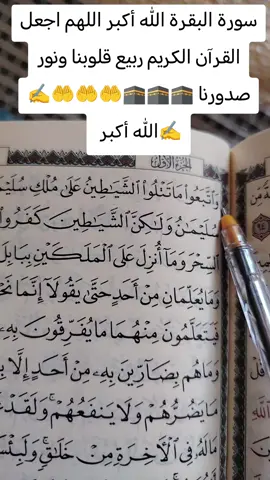 سورة البقرة الله أكبر اللهم اجعل
القرآن الكريم ربيع قلوبنا ونور
صدورنا 🕋🕋🕋🤲🤲🤲✍️
✍️الله أكبر
الجزء الأول
وَاتَّبَعُوا مَا تَتْلُوا الشَّيَاطِينُ عَلَىٰ مُلْكِ سُلَيْمَ
سُلَيْمَانُ وَلَٰكِنَّ الشَّيَاطِينَ كَفَرُوا
السِّحْرَ وَمَا أُنزِلَ عَلَى الْمَلَكَيْنِ بِبَابِلَ
وَمَا يُعَلِّمَانِ مِنْ أَحَدٍ حَتَّىٰ يَقُولَا إِنَّمَا نَحْ
فَيَتَعَلَّمُونَ مِنْهُمَا مَا يُفَرِّقُونَ بِهِ
وَمَا هُم بِضَارِّينَ بِهِ مِنْ أَحَدٍ إِلَّا بِ
مَا يَضُرُّهُمْ وَلَا يَنفَعُهُمْ وَلَقَدْ
مَا لَهُ فِي الْآخِرَةِ مِنْ خَلَاقٍ وَلَبِئْسَ